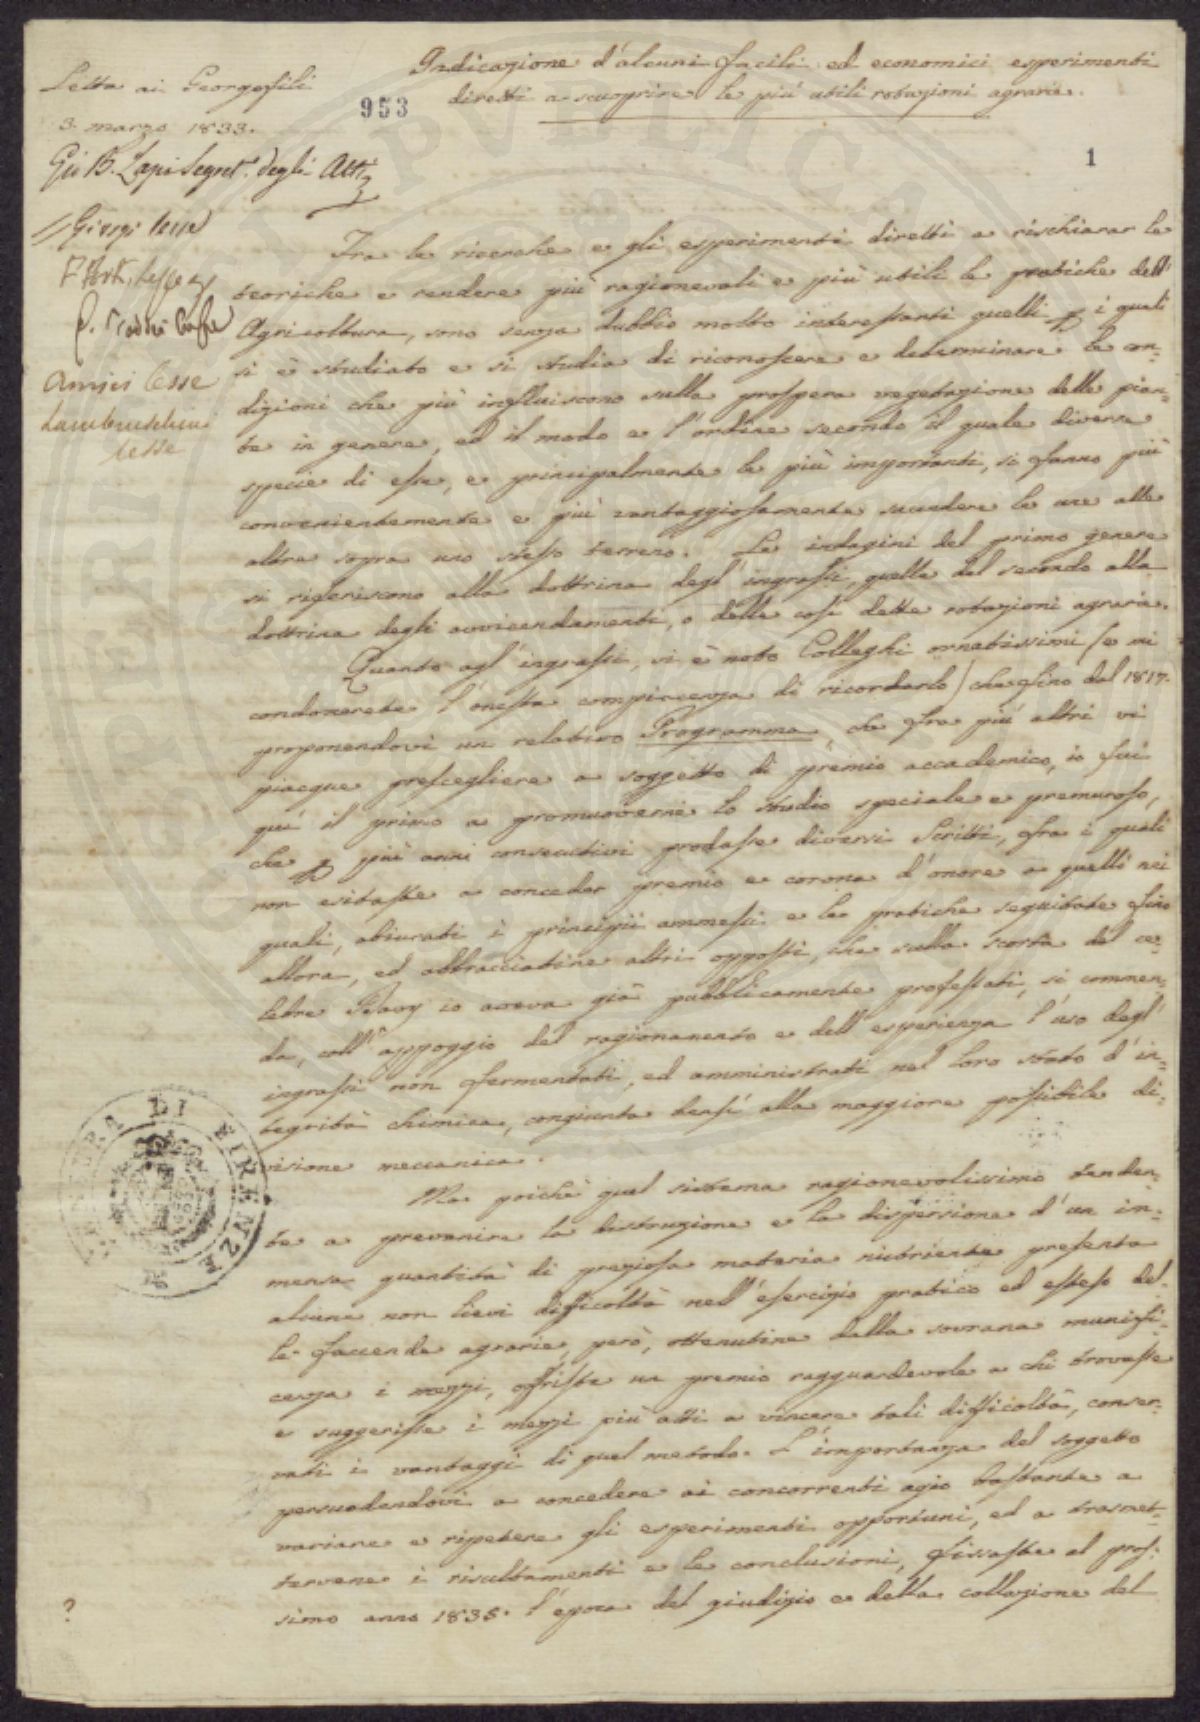 Indicazione d'alcuni facili ed economici esperimenti
diretti a scuoprire le più utili rotazioni agrarie.
Letta ai Georgofili
3. marzo 1833.
953
1
Gio B. Lapi Segret.º degli Atti
Giorgi lesse
Amici lesse
Lambruschini
lesse
Fra le ricerche e gli esperimenti diretti a rischiarar le
teoriche e rendere più ragionevoli e più utili le pratiche dell'
Agricoltura, sono senza dubbio molto interessanti quelli p i quali
si è studiato e si studia di riconoscere e determinare le con=
dizioni che più influiscono sulla prospera vegetazione delle pian=
te in genere, ed il modo e l'ordine secondo il quale diverse
specie di esse, e principalmente le più importanti, si fanno più
convenientemente e più vantaggiosamente succedere le une alle
altre sopra uno stesso terreno. Le indagini del primo genere
si riferiscono alla dottrina degl'ingrassi, quelle del secondo alla
dottrina degli avvicendamenti, o delle così dette rotazioni agrarie.
Quanto agl'ingrassi, vi è noto Colleghi ornatissimi (e mi
condonerete l'onesta compiacenza di ricordarlo) che fino dal 1817.
proponendovi un relativo Programma che fra più altri vi
piacque prescegliere a soggetto di premio accademico, io fui
qui il primo a promuoverne lo studio speciale e premuroso,
che p più anni consecutivi produsse diversi Scritti, fra i quali
non esitaste a conceder premio e corona d'onore a quelli nei
quali, abiurati i principii ammessi e le pratiche seguitate fino
allora, ed abbracciatine altri opposti, che sulla scorta del ce=
lebre Davy io aveva già pubblicamente professati, si commen=
da, coll'appoggio del ragionamento e dell'esperienza l'uso degl'
ingrassi non fermentati, ed amministrati nel loro stato d'in=
tegrità chimica, congiunta bensì alla maggiore possibile di=
visione meccanica.
Ma poichè quel sistema ragionevolissimo tenden=
te a prevenire la distruzione e la dispersione d'un im=
mensa quantità di preziosa materia nutriente presenta
alcune non lievi difficoltà nell'esercizio pratico ed esteso del=
le faccende agrarie, però, ottenutine dalla sovrana munifi=
cenza i mezzi, offriste un premio ragguardevole a chi trovasse
e suggerisse i mezzi più atti a vincere tali difficoltà, conser=
vati i vantaggi di quel metodo. L'importanza del soggetto
persuadendovi a concedere ai concorrenti agio bastante a
variare e ripetere gli esperimenti opportuni, ed a trasmet=
tervene i risultamenti e le conclusioni, fissaste al pros=
simo anno 1835. l'epoca del giudizio e della collazione del
?
DI FIRENZE